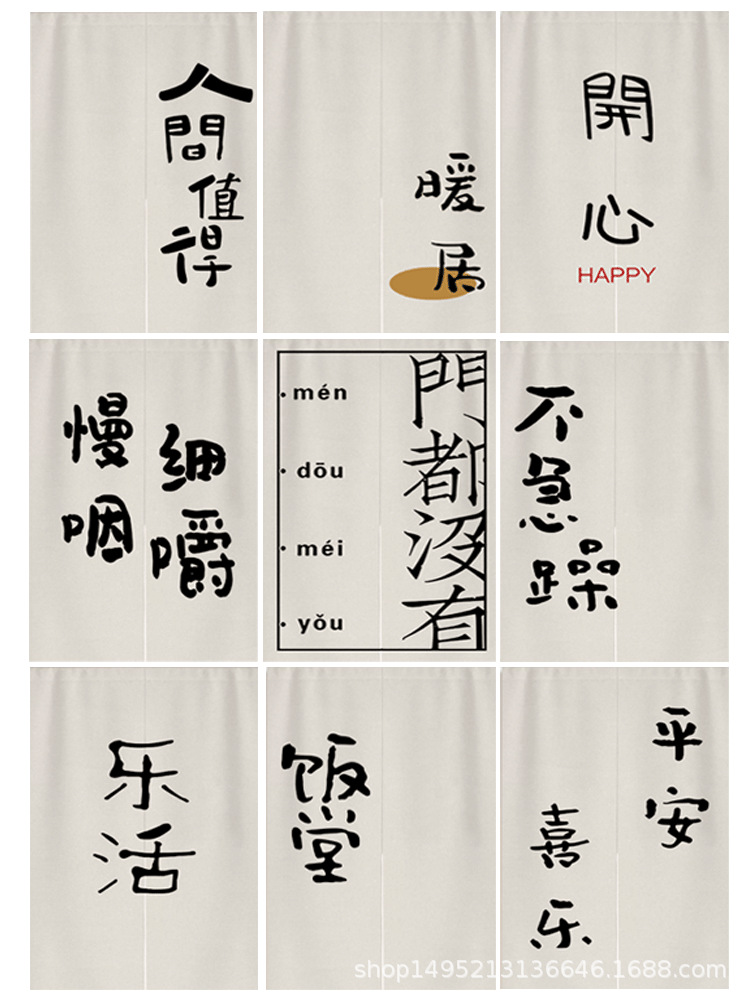 人間值得
暖居
開心
HAPPY
细嚼
慢咽
mén
dōu
méi
yǒu
門都没有
不急躁
乐活
饭堂
平安
喜乐
shop1495213136646.1688.com